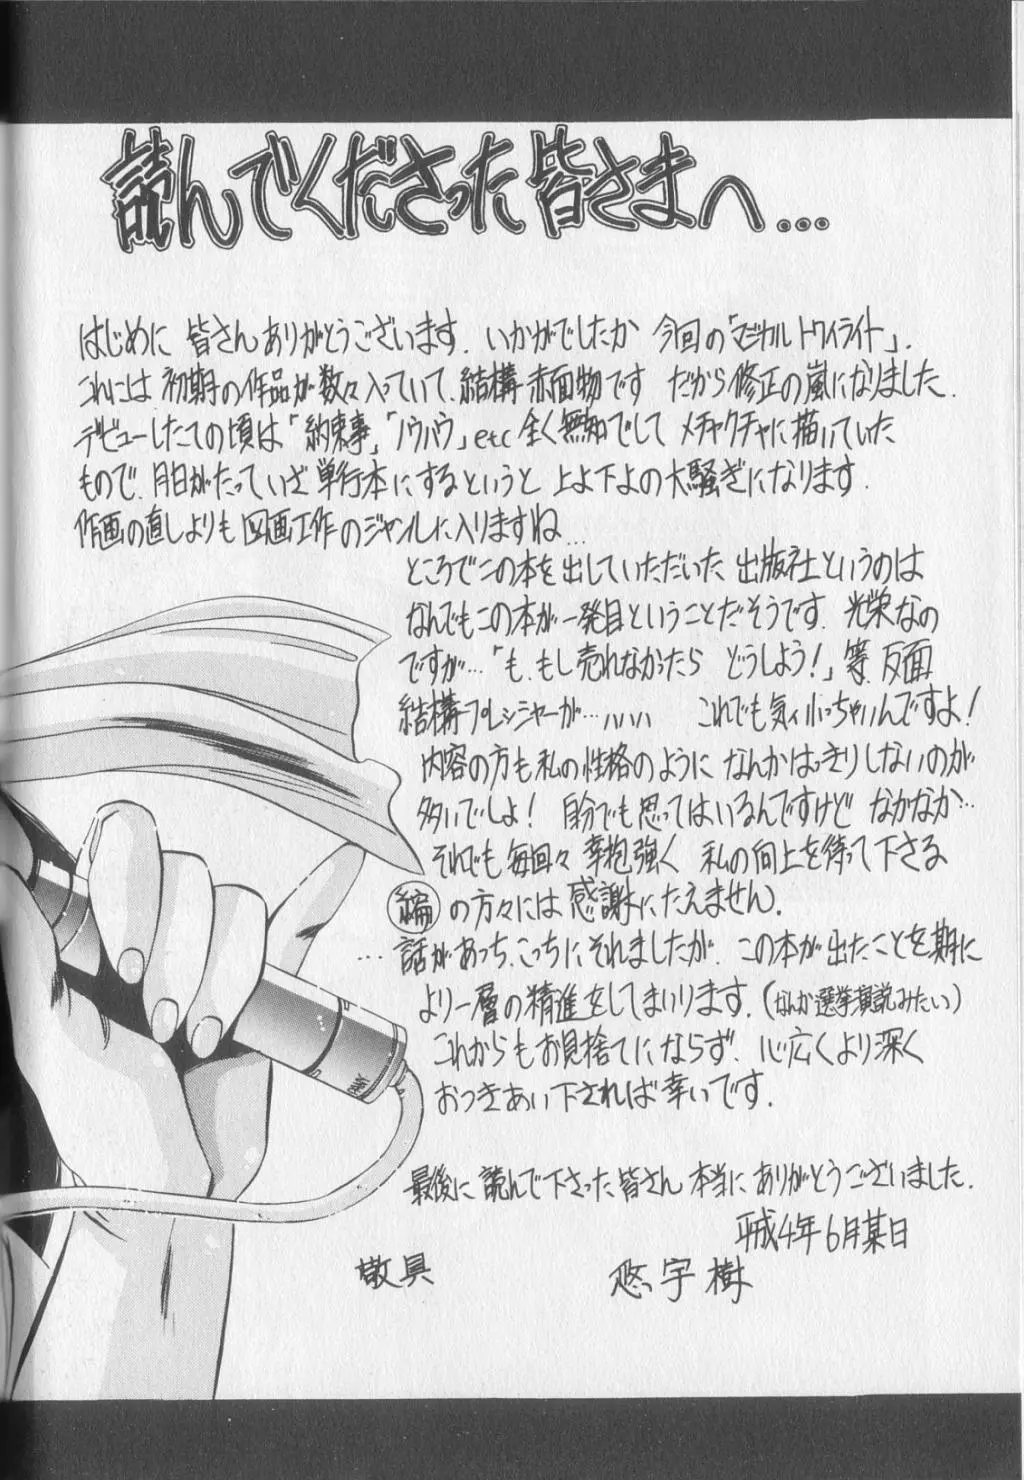 読んでくださった皆さまへ...
はじめに 皆さんありがとうございます. いかがでしたか 今回の「マジカルトワイライト」.
これには 初期の作品が数々入っていて、結構赤面物です だから修正の嵐になりました.
デビューしたての頃は「約束事」「ノウハウ」etc 全く無知でして メチャクチャに描いていた
もので、月日がたっていざ単行本にするというと 上よ下よの大騒ぎになります.
作画の直しよりも 図画工作のジャンルに入りますね...
ところでこの本を出していただいた 出版社というのは
なんでもこの本が一発目ということだそうです. 光栄なの
ですが...「も、もし売れなかったら どうしよう!」等、反面
結構プレッシャーが...ハハハ これでも気ィ小っちゃいんですよ!
内容の方も私の性格のように なんかはっきりしないのが
多いでしょ! 自分でも思ってはいるんですけど なかなか...
それでも 毎回々 辛抱強く 私の向上を待って下さる
編の方々には感謝にたえません.
...話があっち、こっちにそれましたが、この本が出たことを期に
より一層の精進をしてまいります.(なんか選挙演説みたい)
これからもお見捨てにならず、心広くより深く
おつきあい下されば幸いです.
最後に 読んで下さった皆さん 本当にありがとうございました.
平成4年6月某日
敬具 悠宇樹